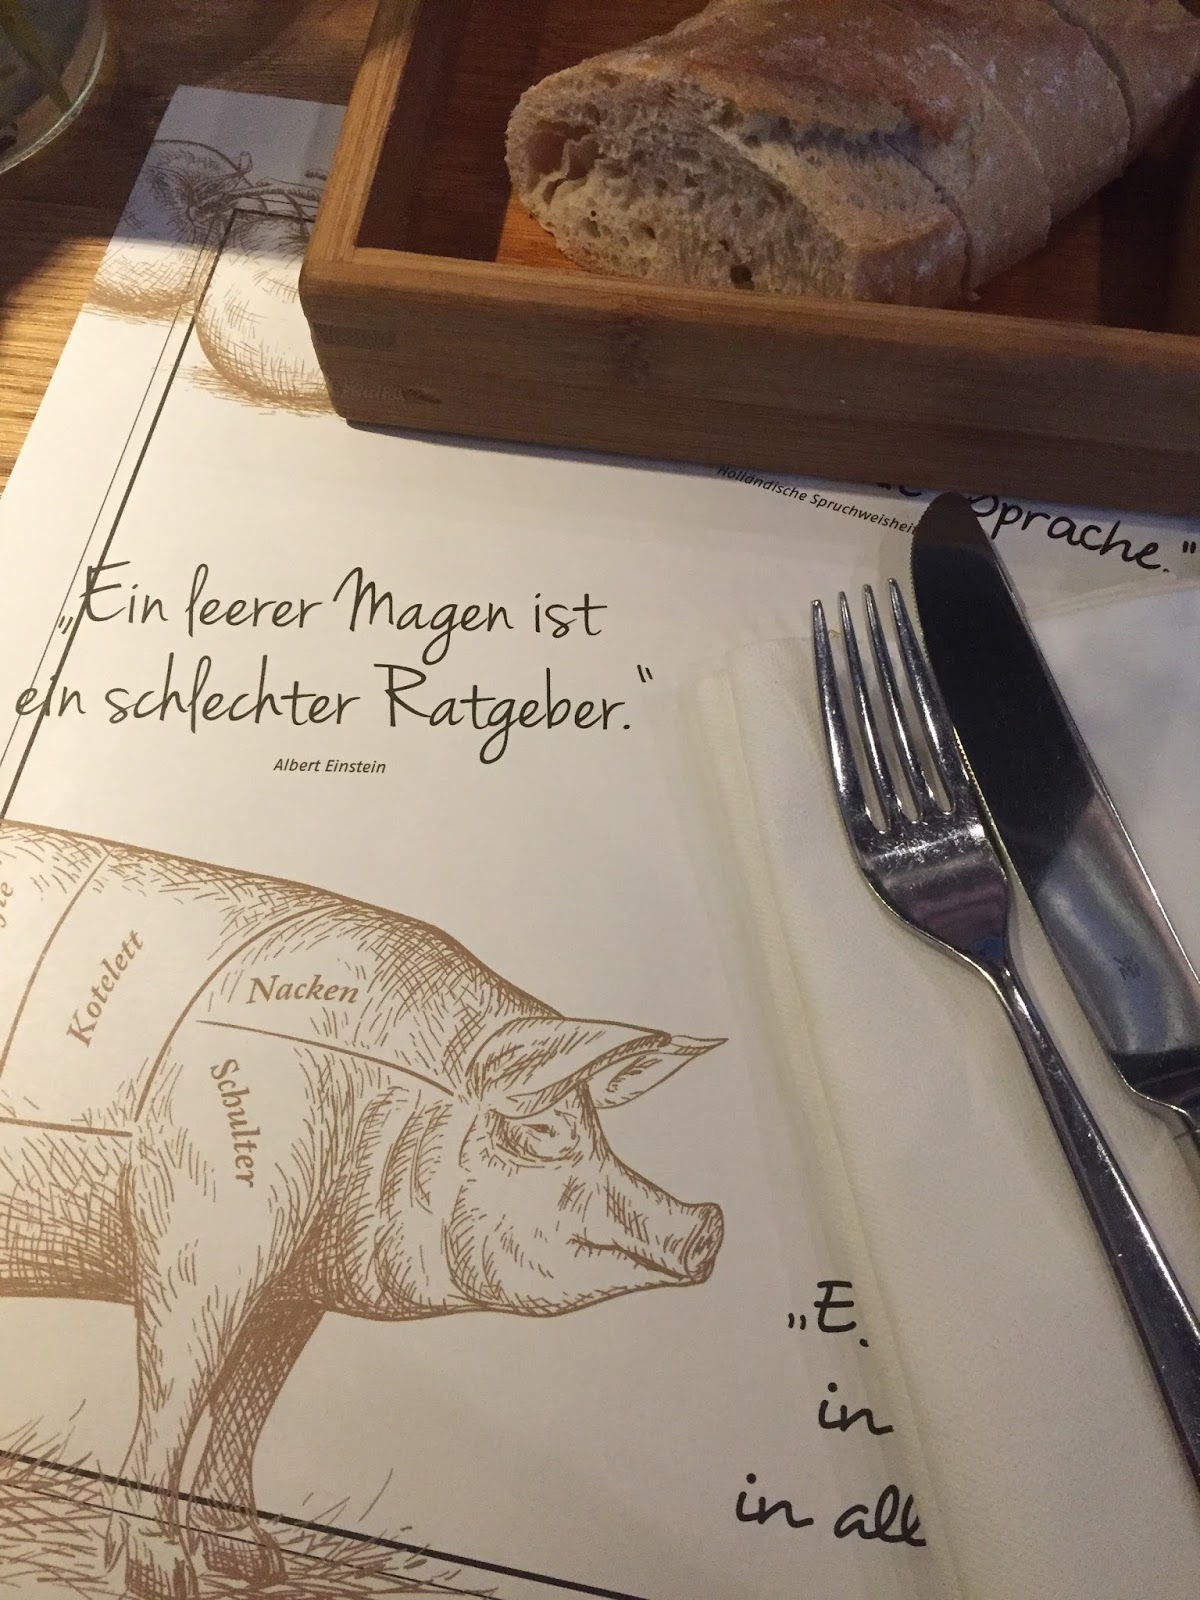 Sprache."
Holländische Spruchweisheit
„Ein leerer Magen ist
ein schlechter Ratgeber."
Albert Einstein
Kotelett
Nacken
Schulter
„E
in
in all